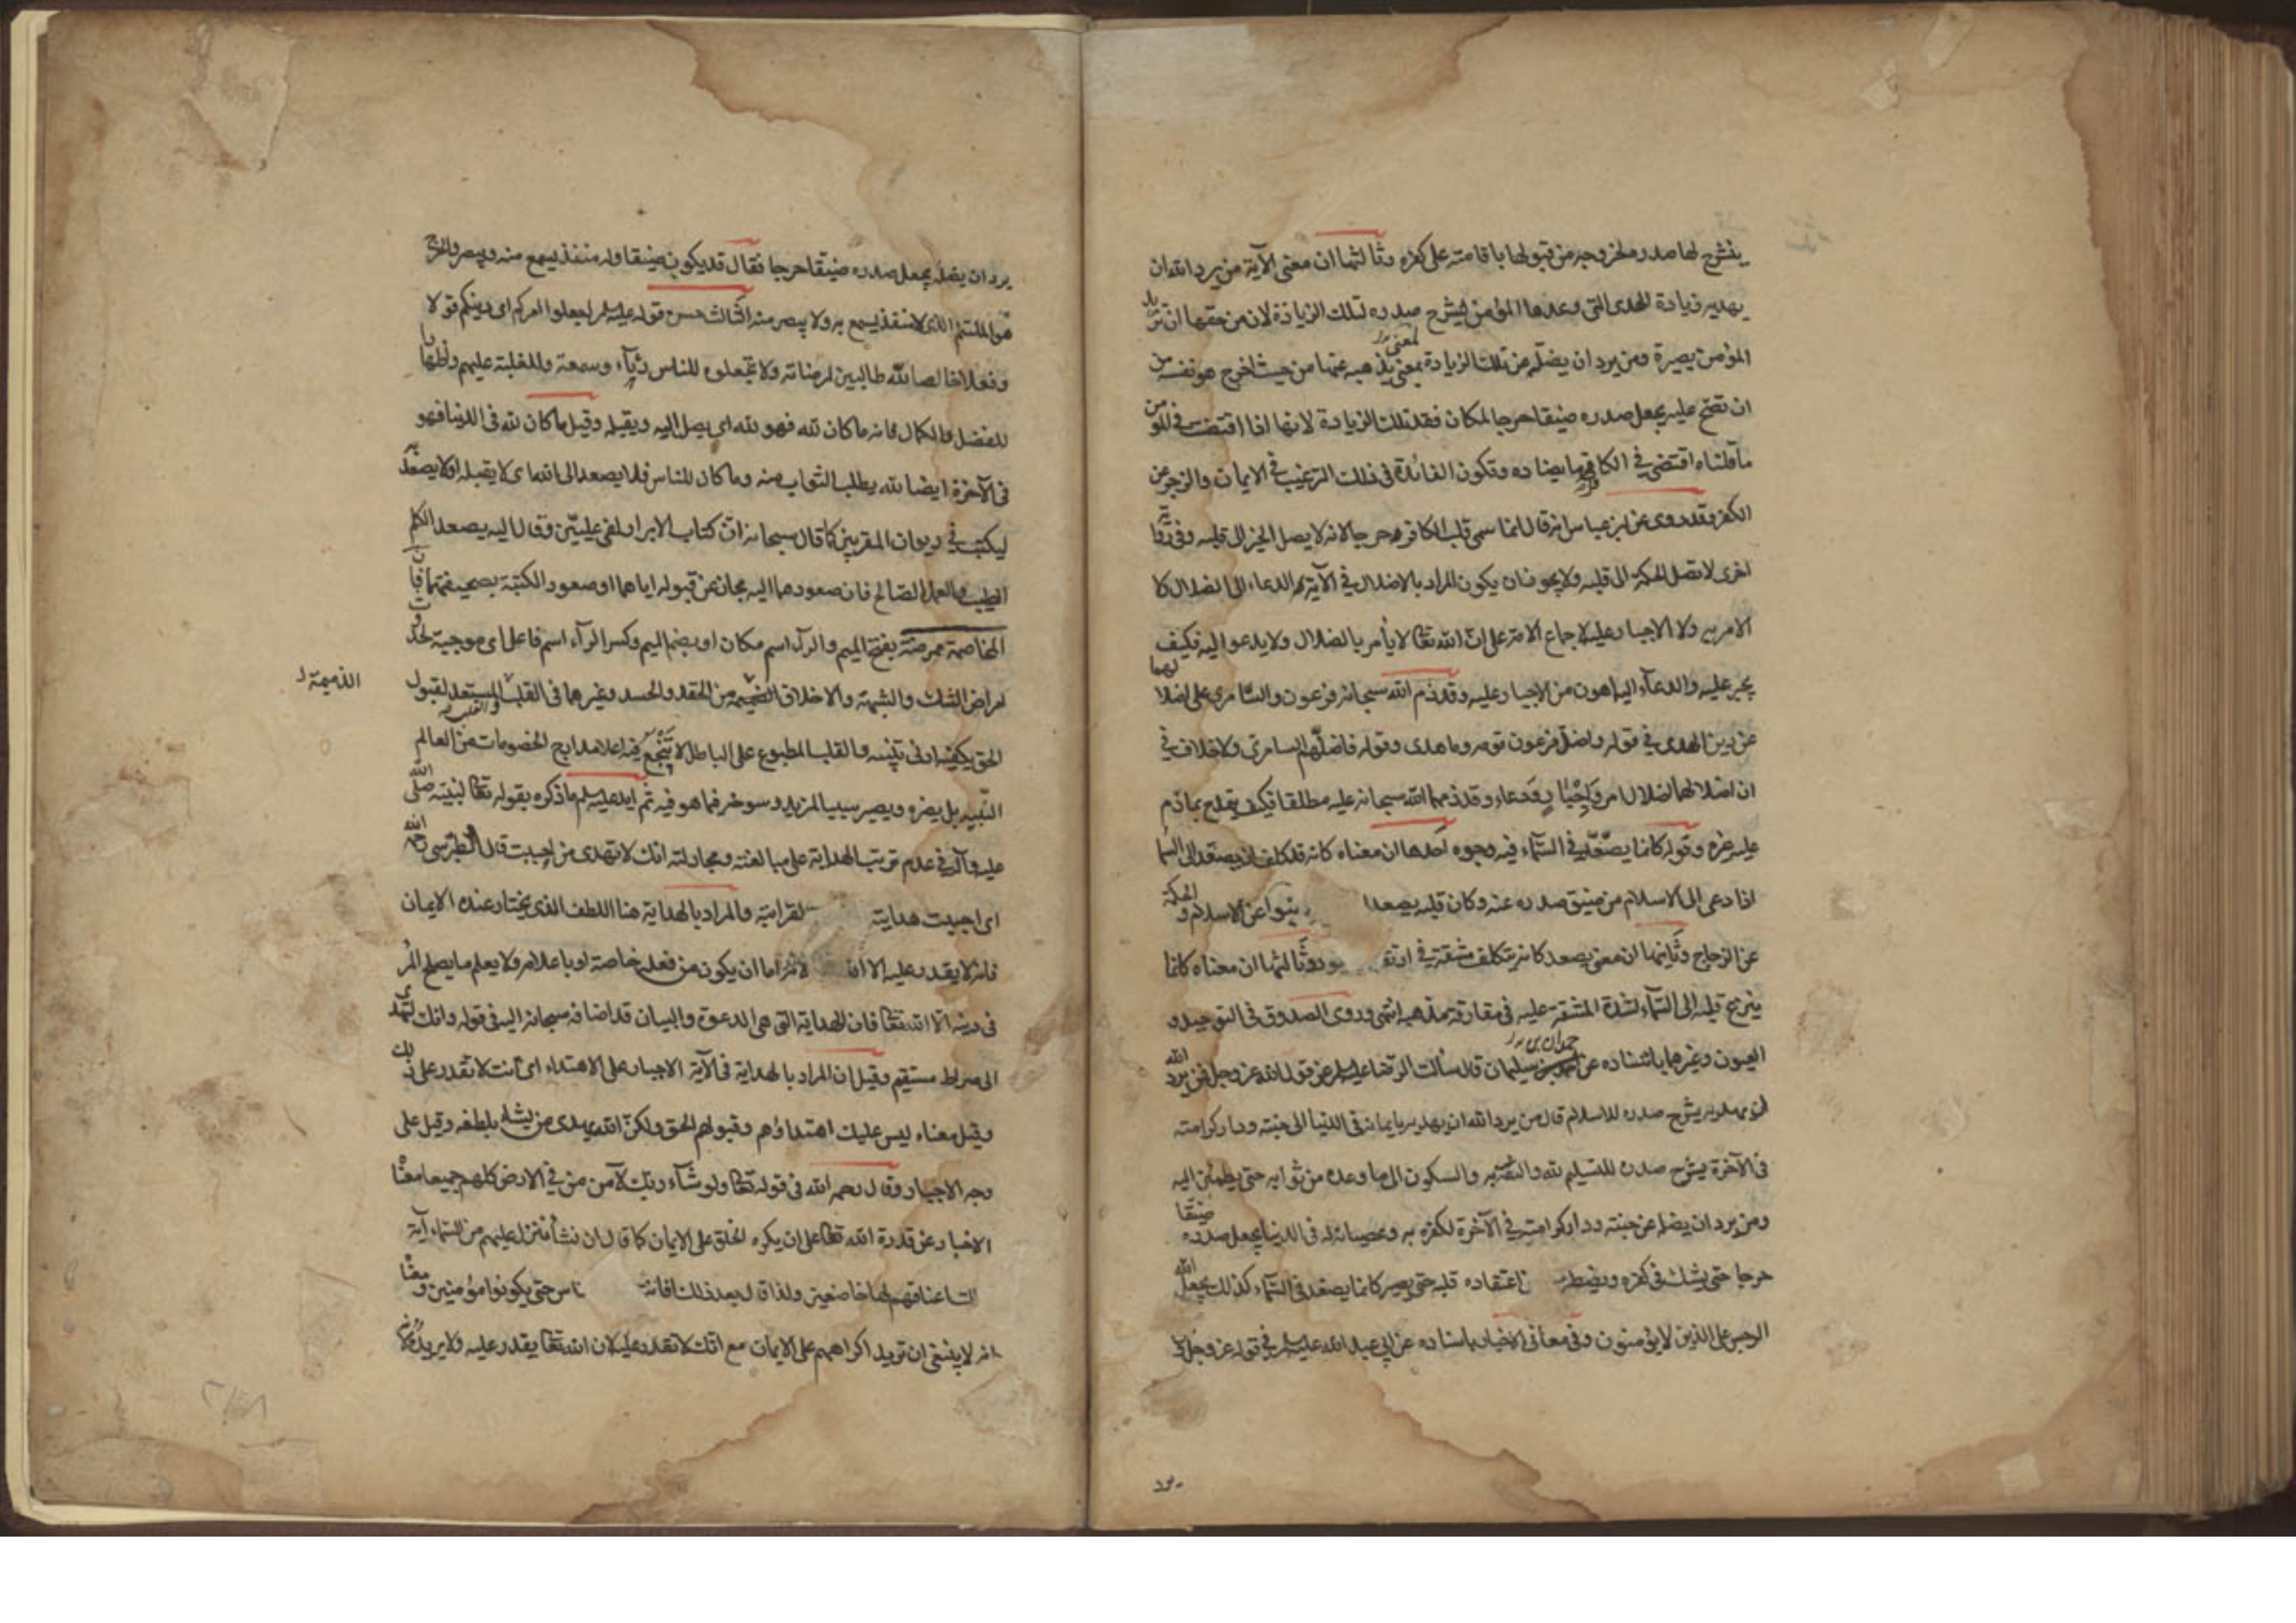 ينشرح لها صدره لخروجه من قبولها باقامته على كفره وثالثها ان معنى الآية من يرد الله ان
يهديه زيادة الهدى التي وعدها المؤمن يشرح صدره لتلك الزيادة لان من حقها ان تزيد
المؤمن بصيرة ومن يرد ان يضله عن تلك الزيادة بمعنى يذهبه عنها من حيث اخرج هو نفسه من
ان تصح عليه يجعل صدره ضيقا حرجا لمكان فقد تلك الزيادة لانها اذا اقتضت في المؤمن
ما قلناه اقتضى في الكافر ما يضاده وتكون الفائدة في ذلك الترغيب في الايمان والزجر عن
الكفر وقد روى عن ابن عباس انه قال انما سمى قلب الكافر حرجا لانه لا يصل الخير الى قلبه وفي رواية
اخرى لا تصل الحكمة الى قلبه ولا يجوز ان يكون المراد بالاضلال في الآية الدعاء الى الضلال ولا
الامر به ولا الاجبار عليه لاجماع الامة على ان الله تعالى لا يأمر بالضلال ولا يدعو اليه فكيف
يجبر عليه والدعاء اليه اهون من الاجبار عليه وقد ذم الله سبحانه فرعون والسامرى على اضلالهما
عن دين الهدى في قوله واضل فرعون قومه وما هدى وقوله فاضلهم السامرى ولا خلاف في
ان اضلالهما اضلال امر واجبار ودعاء وقد ذمهما الله سبحانه عليه مطلقا فكيف يتمدح بما ذم
عليه غيره وقوله كانما يصعد في السماء فيه وجوه احدها ان معناه كانه قد كلف ان يصعد الى السماء
اذا دعى الى الاسلام من ضيق صدره عنه وكان قلبه يصعد نبوا عن الاسلام والحكمة
عن الزجاج وثانيها ان معنى يصعد كانه يتكلف مشقة في ارتقا وثالثها ان معناه كانما
ينزع قلبه الى السماء لشدة المشقة عليه في مفارقة مذهبه انتهى وروى الصدوق في التوحيد و
العيون وغيرهما باسناده عن حمدان بن سليمان قال سألت الرضا عليه السلام عن قول الله عز وجل فمن يرد الله
ان يهديه يشرح صدره للاسلام قال من يرد الله ان يهديه بايمانه في الدنيا الى جنته ودار كرامته
في الآخرة يشرح صدره للتسليم لله والثقة به والسكون الى ما وعده من ثوابه حتى يطمئن اليه
ومن يرد ان يضله عن جنته ودار كرامته في الآخرة لكفره به وعصيانه له في الدنيا يجعل صدره ضيقا
حرجا حتى يشك في كفره ويضطر اعتقاده قلبه حتى يصير كانما يصعد في السماء كذلك يجعل الله
الرجس على الذين لا يؤمنون وفي معاني الاخبار باسناده عن ابي عبد الله عليه السلام في قوله عز وجل
يرد
يرد ان يضله يجعل صدره ضيقا حرجا فقال قد يكون ضيقا وله منفذ يسمع منه ويبصر والحرج
هو الملتئم الذي لا منفذ يسمع به ولا يبصر منه الثالث حسن قوله عليه السلام اجعلوا امركم اى دينكم قولا
وفعلا خالصا لله طالبين لمرضاته ولا تجعلوه للناس رياء وسمعة وللغلبة عليهم واظهارا
للفضل والكمال فانه ما كان لله فهو لله اى يصل اليه ويقبله وقيل ما كان لله في الدنيا فهو
في الآخرة ايضا لله يطلب الثواب منه وما كان للناس فلا يصعد الى الله اى لا يقبله او لا يصعد به
ليكتب في ديوان المقربين كما قال سبحانه ان كتاب الابرار لفى عليين وقال اليه يصعد الكلم
الطيب والعمل الصالح فان صعودهما اليه مجاز عن قبوله اياهما او صعود الكتبة بصحيفتهما فان
المخاصمة ممرضة بفتح الميم والراء اسم مكان او بضم الميم وكسر الراء اسم فاعل اى موجبة لحدوث
امراض الشك والشبهة والاخلاق الذميمة من الحقد والحسد وغيرهما في القلب المستعد لقبول
الذميمة
الحق يكفيه ادنى تنبيه والقلب المطبوع على الباطل لا تنجع فيه اعلا مدارج الخصومات من العالم
النبيه بل يضره ويصير سببا لمزيد رسوخه فيما هو فيه ثم ايد عليه السلام ما ذكره بقوله تعالى لنبيه صلى الله
عليه وآله في عدم ترتب الهداية على مبالغته ومجادلته انك لا تهدى من احببت قال الطبرسى رحمه الله
اى احببت هدايته لقرابته والمراد بالهداية هنا اللطف الذى يختار عنده الايمان
فانه لا يقدر عليه الا الله لانه اما ان يكون من فعله خاصة او باعلامه ولا يعلم ما يصلح المرء
في دينه الا الله تعالى فان الهداية التى هى الدعوة والبيان قد اضافه سبحانه اليه في قوله وانك لتهدى
الى صراط مستقيم وقيل ان المراد بالهداية في الآية الاجبار على الاهتداء اى انت لا تقدر على ذلك
وقيل معناه ليس عليك اهتداؤهم وقبولهم الحق ولكن الله يهدى من يشاء بلطفه وقيل على
وجه الاجبار وقال رحمه الله في قوله تعالى ولو شاء ربك لآمن من في الارض كلهم جميعا معناه
الاخبار عن قدرة الله تعالى على ان يكره الخلق على الايمان كما قال ان نشأ ننزل عليهم من السماء آية
اعناقهم لها خاضعين ولذا قال بعد ذلك افانت ناس حتى يكونوا مؤمنين ومعناه
انه لا ينبغى ان تريد اكراههم على الايمان مع انك لا تقدر عليه لان الله تعالى يقدر عليه ولا يريده